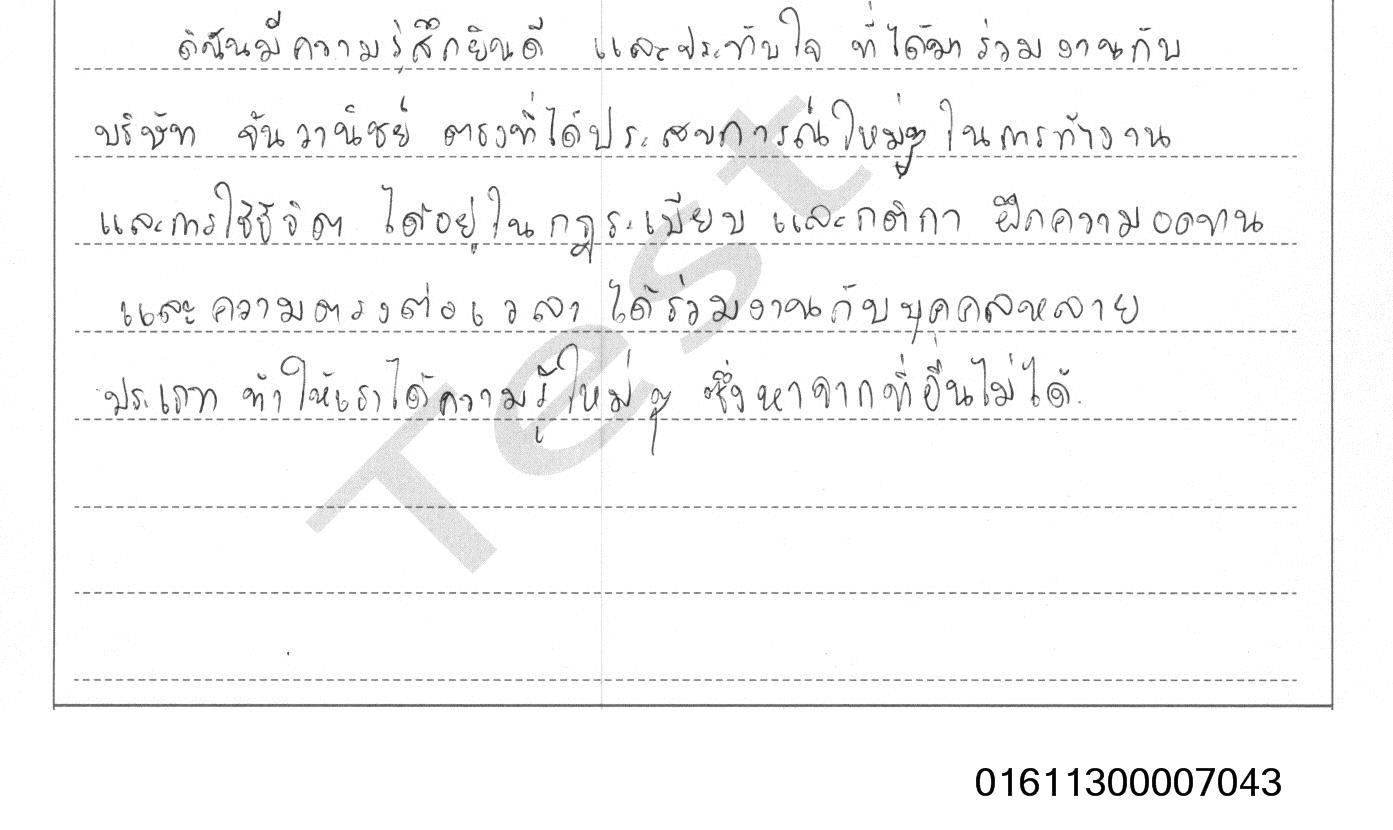 ดิฉันมีความรู้สึกยินดี และประทับใจ ที่ได้มาร่วมงานกับ
บริษัท จันวานิชย์ ตรงที่ได้ประสบการณ์ใหม่ๆ ในการทำงาน
และการใช้ชีวิต ได้อยู่ในกฎระเบียบ และกติกา ฝึกความอดทน
และความตรงต่อเวลา ได้ร่วมงานกับบุคคลหลาย
ประเภท ทำให้เราได้ความรู้ใหม่ ๆ ซึ่งหาจากที่อื่นไม่ได้.
Test
01611300007043